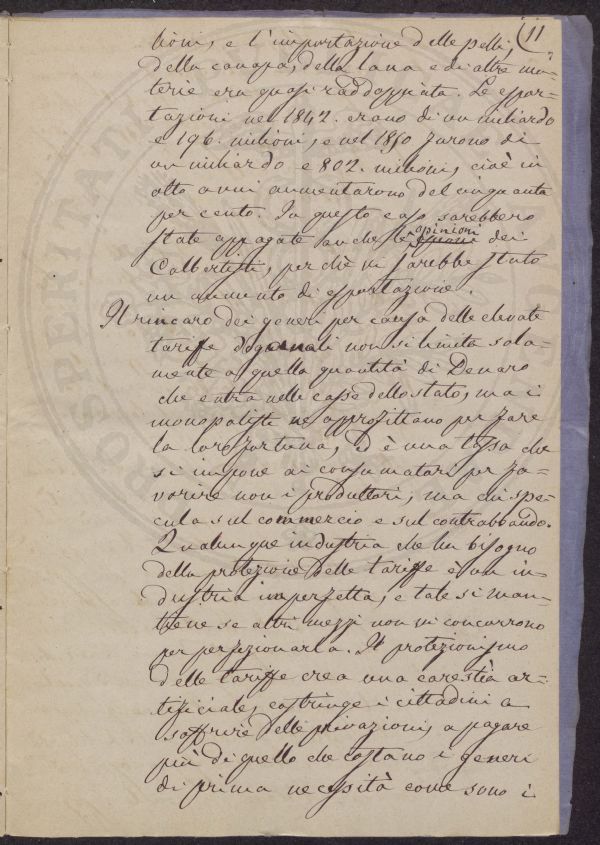 11
lioni, e l'importazione delle pelli,
della canapa, della lana e di altre ma-
terie era quasi raddoppiata. Le espor-
tazioni nel 1842. erano di un miliardo
e 196. milioni, e nel 1850 furono di
un miliardo e 802. milioni, cioè in
otto anni aumentarono del cinquanta
per cento. In questo caso sarebbero
state appagate anche le opinioni dei
Colbertisti, perchè vi sarebbe stato
un aumento di esportazione.
Il rincaro dei generi per causa delle elevate
tariffe doganali non si limita sola-
mente a quella quantità di Denaro
che entra nelle casse dello stato, ma i
monopolisti ne approfittano per fare
la loro fortuna, è una tassa che
si impone ai consumatori per fa-
vorire non i produttori, ma chi spe-
cula sul commercio e sul contrabbando.
Qualunque industria che ha bisogno
della protezione delle tariffe è un in-
dustria imperfetta, e tale si man-
tiene se altri mezzi non vi concorrono
per perfezionarla. Il protezionismo
delle tariffe crea una carestia ar-
tificiale, costringe i cittadini a
soffrire delle privazioni, a pagare
più di quello che costano i generi
di prima necessità come sono i
PROSPERITATI